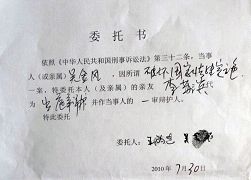 委托书
依照《中华人民共和国刑事诉讼法》第三十二条，当事
人（或亲属）吴金凤，因所谓破坏国家法律实施
一案，特委托本人（及亲属）的亲友
为出庭辩护并作当事人的一审辩护人。
特此委托
委托人：
2010年7月30日